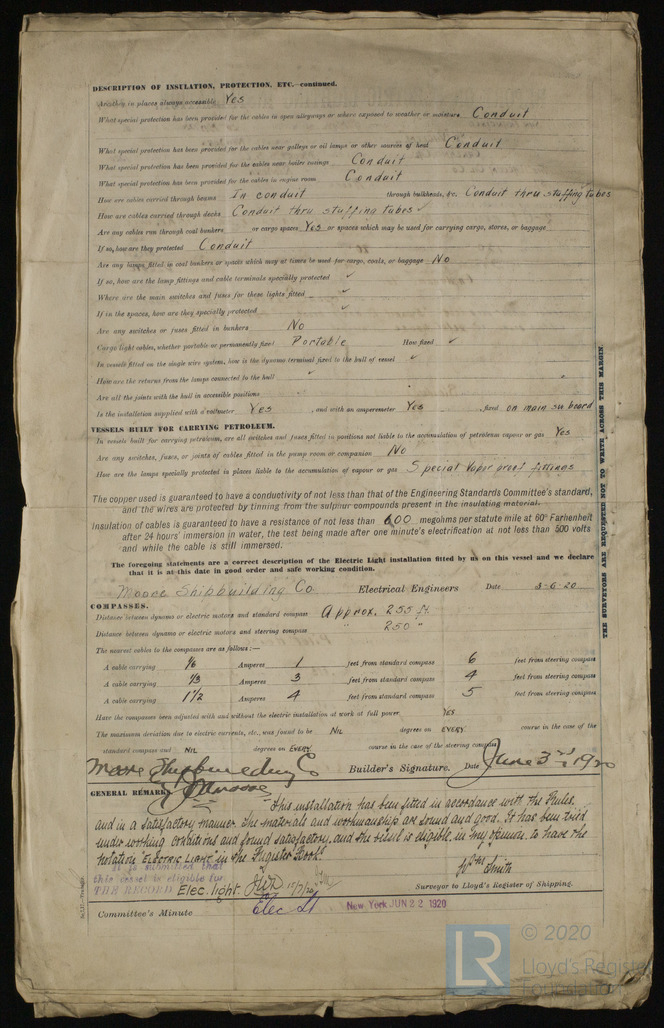 DESCRIPTION OF INSULATION, PROTECTION, ETC.—continued.
Are they in places always accessible Yes
What special protection has been provided for the cables in open alleyways or where exposed to weather or moisture Conduit
What special protection has been provided for the cables near galleys or oil lamps or other sources of heat Conduit
What special protection has been provided for the cables near boiler casings Conduit
What special protection has been provided for the cables in engine room Conduit
How are cables carried through beams In conduit through bulkheads, &c. Conduit thru stuffing tubes
How are cables carried through decks Conduit thru stuffing tubes ✓
Are any cables run through coal bunkers or cargo spaces Yes or spaces which may be used for carrying cargo, stores, or baggage
If so, how are they protected Conduit
Are any lamps fitted in coal bunkers or spaces which may at times be used for cargo, coals, or baggage No
If so, how are the lamp fittings and cable terminals specially protected ✓
Where are the main switches and fuses for these lights fitted ✓
If in the spaces, how are they specially protected ✓
Are any switches or fuses fitted in bunkers No
Cargo light cables, whether portable or permanently fixed Portable How fixed ✓
In vessels fitted on the single wire system, how is the dynamo terminal fixed to the hull of vessel ✓
How are the returns from the lamps connected to the hull ✓
Are all the joints with the hull in accessible positions
Is the installation supplied with a voltmeter Yes, and with an amperemeter Yes, fixed on main sw board
VESSELS BUILT FOR CARRYING PETROLEUM.
In vessels built for carrying petroleum, are all switches and fuses fitted in positions not liable to the accumulation of petroleum vapour or gas Yes
Are any switches, fuses, or joints of cables fitted in the pump room or companion No
How are the lamps specially protected in places liable to the accumulation of vapour or gas Special Vapor proof fittings
The copper used is guaranteed to have a conductivity of not less than that of the Engineering Standards Committee's standard,
and the wires are protected by tinning from the sulphur compounds present in the insulating material.
Insulation of cables is guaranteed to have a resistance of not less than 600 megohms per statute mile at 60° Farhenheit
after 24 hours' immersion in water, the test being made after one minute's electrification at not less than 500 volts
and while the cable is still immersed.
The foregoing statements are a correct description of the Electric Light installation fitted by us on this vessel and we declare
that it is at this date in good order and safe working condition.
Moore Shipbuilding Co Electrical Engineers Date 3-6-20
COMPASSES.
Distance between dynamo or electric motors and standard compass Approx. 255 ft.
Distance between dynamo or electric motors and steering compass " 250 "
The nearest cables to the compasses are as follows:—
A cable carrying 1/6 Amperes 1 feet from standard compass 6 feet from steering compass
A cable carrying 1/3 Amperes 3 feet from standard compass 4 feet from steering compass
A cable carrying 1 1/2 Amperes 4 feet from standard compass 5 feet from steering compass
Have the compasses been adjusted with and without the electric installation at work at full power YES
The maximum deviation due to electric currents, etc., was found to be NIL degrees on EVERY course in the case of the
standard compass and NIL degrees on EVERY course in the case of the steering compass
Moore Shipbuilding Co Builder's Signature. Date June 3rd 1920
GENERAL REMARKS
This installation has been fitted in accordance with the Rules,
and in a satisfactory manner. The materials and workmanship are sound and good. It has been tried
under working conditions and found satisfactory, and the vessel is eligible, in my opinion, to have the
notation "ELECTRIC LIGHT" in the Register Book.
It is submitted that
this vessel is eligible for
THE RECORD Elec. light.
Smith
Surveyor to Lloyd's Register of Shipping.
Committee's Minute Elec Lt New York JUN 22 1920
THE SURVEYORS ARE REQUESTED NOT TO WRITE ACROSS THIS MARGIN.
LR
© 2020
Lloyd's Register
Foundation